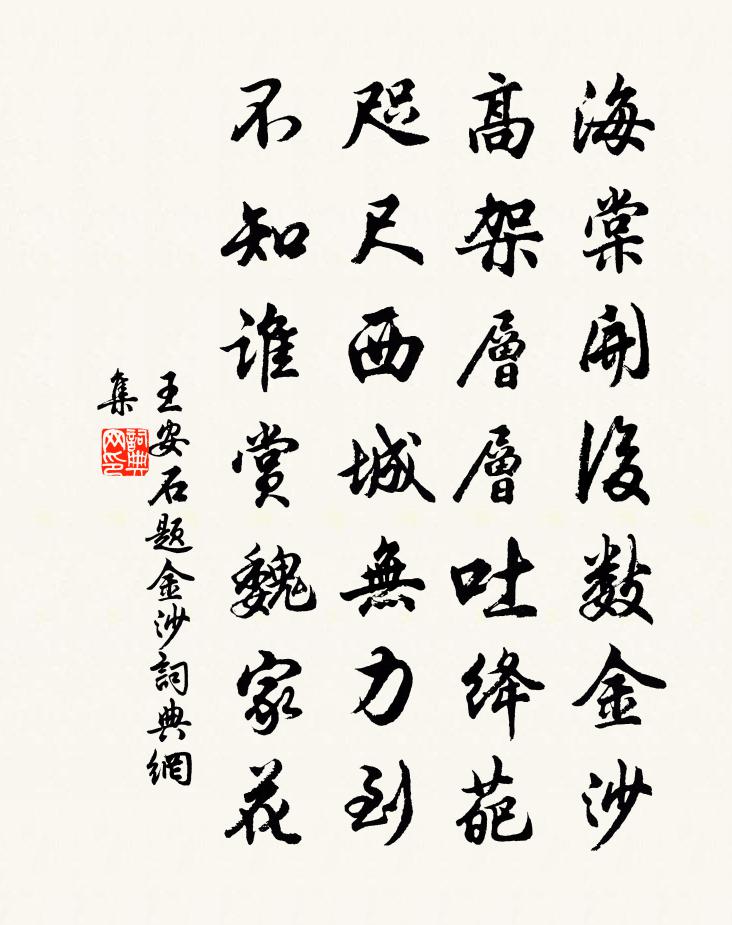 海棠開後數金沙
高架層層吐絳葩
咫尺西城無力到
不知誰賞魏家花
王安石題金沙詞典網
集
詞典
网印